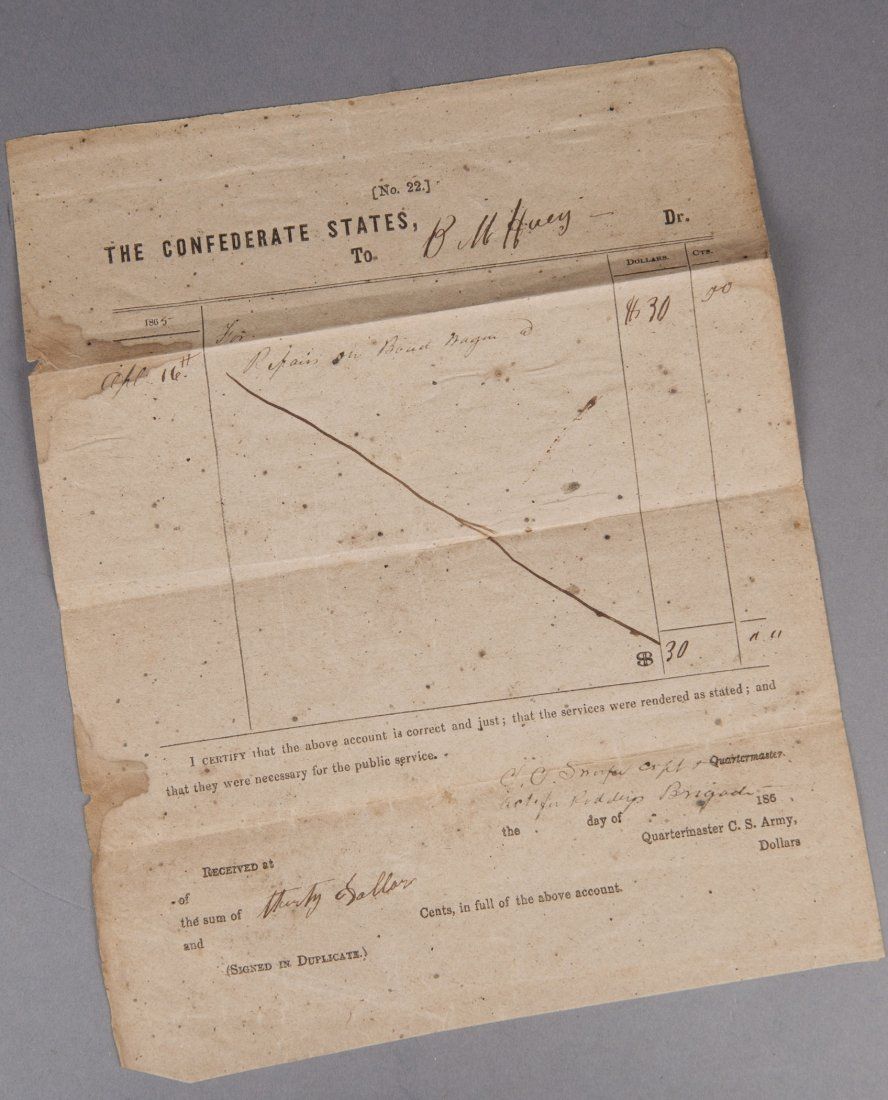 [No. 22.]
THE CONFEDERATE STATES,
To B M Huey Dr.
DOLLARS. CTS.
1865
For
Apl 16th Repairs on Wagon $30 00
$ 30 " "
I CERTIFY that the above account is correct and just; that the services were rendered as stated; and
that they were necessary for the public service.
C. O. Capt & Quartermaster
Brigade
the day of 186
RECEIVED at
of Quartermaster C. S. Army,
the sum of thirty Dollar Dollars
and Cents, in full of the above account.
(SIGNED IN DUPLICATE.)